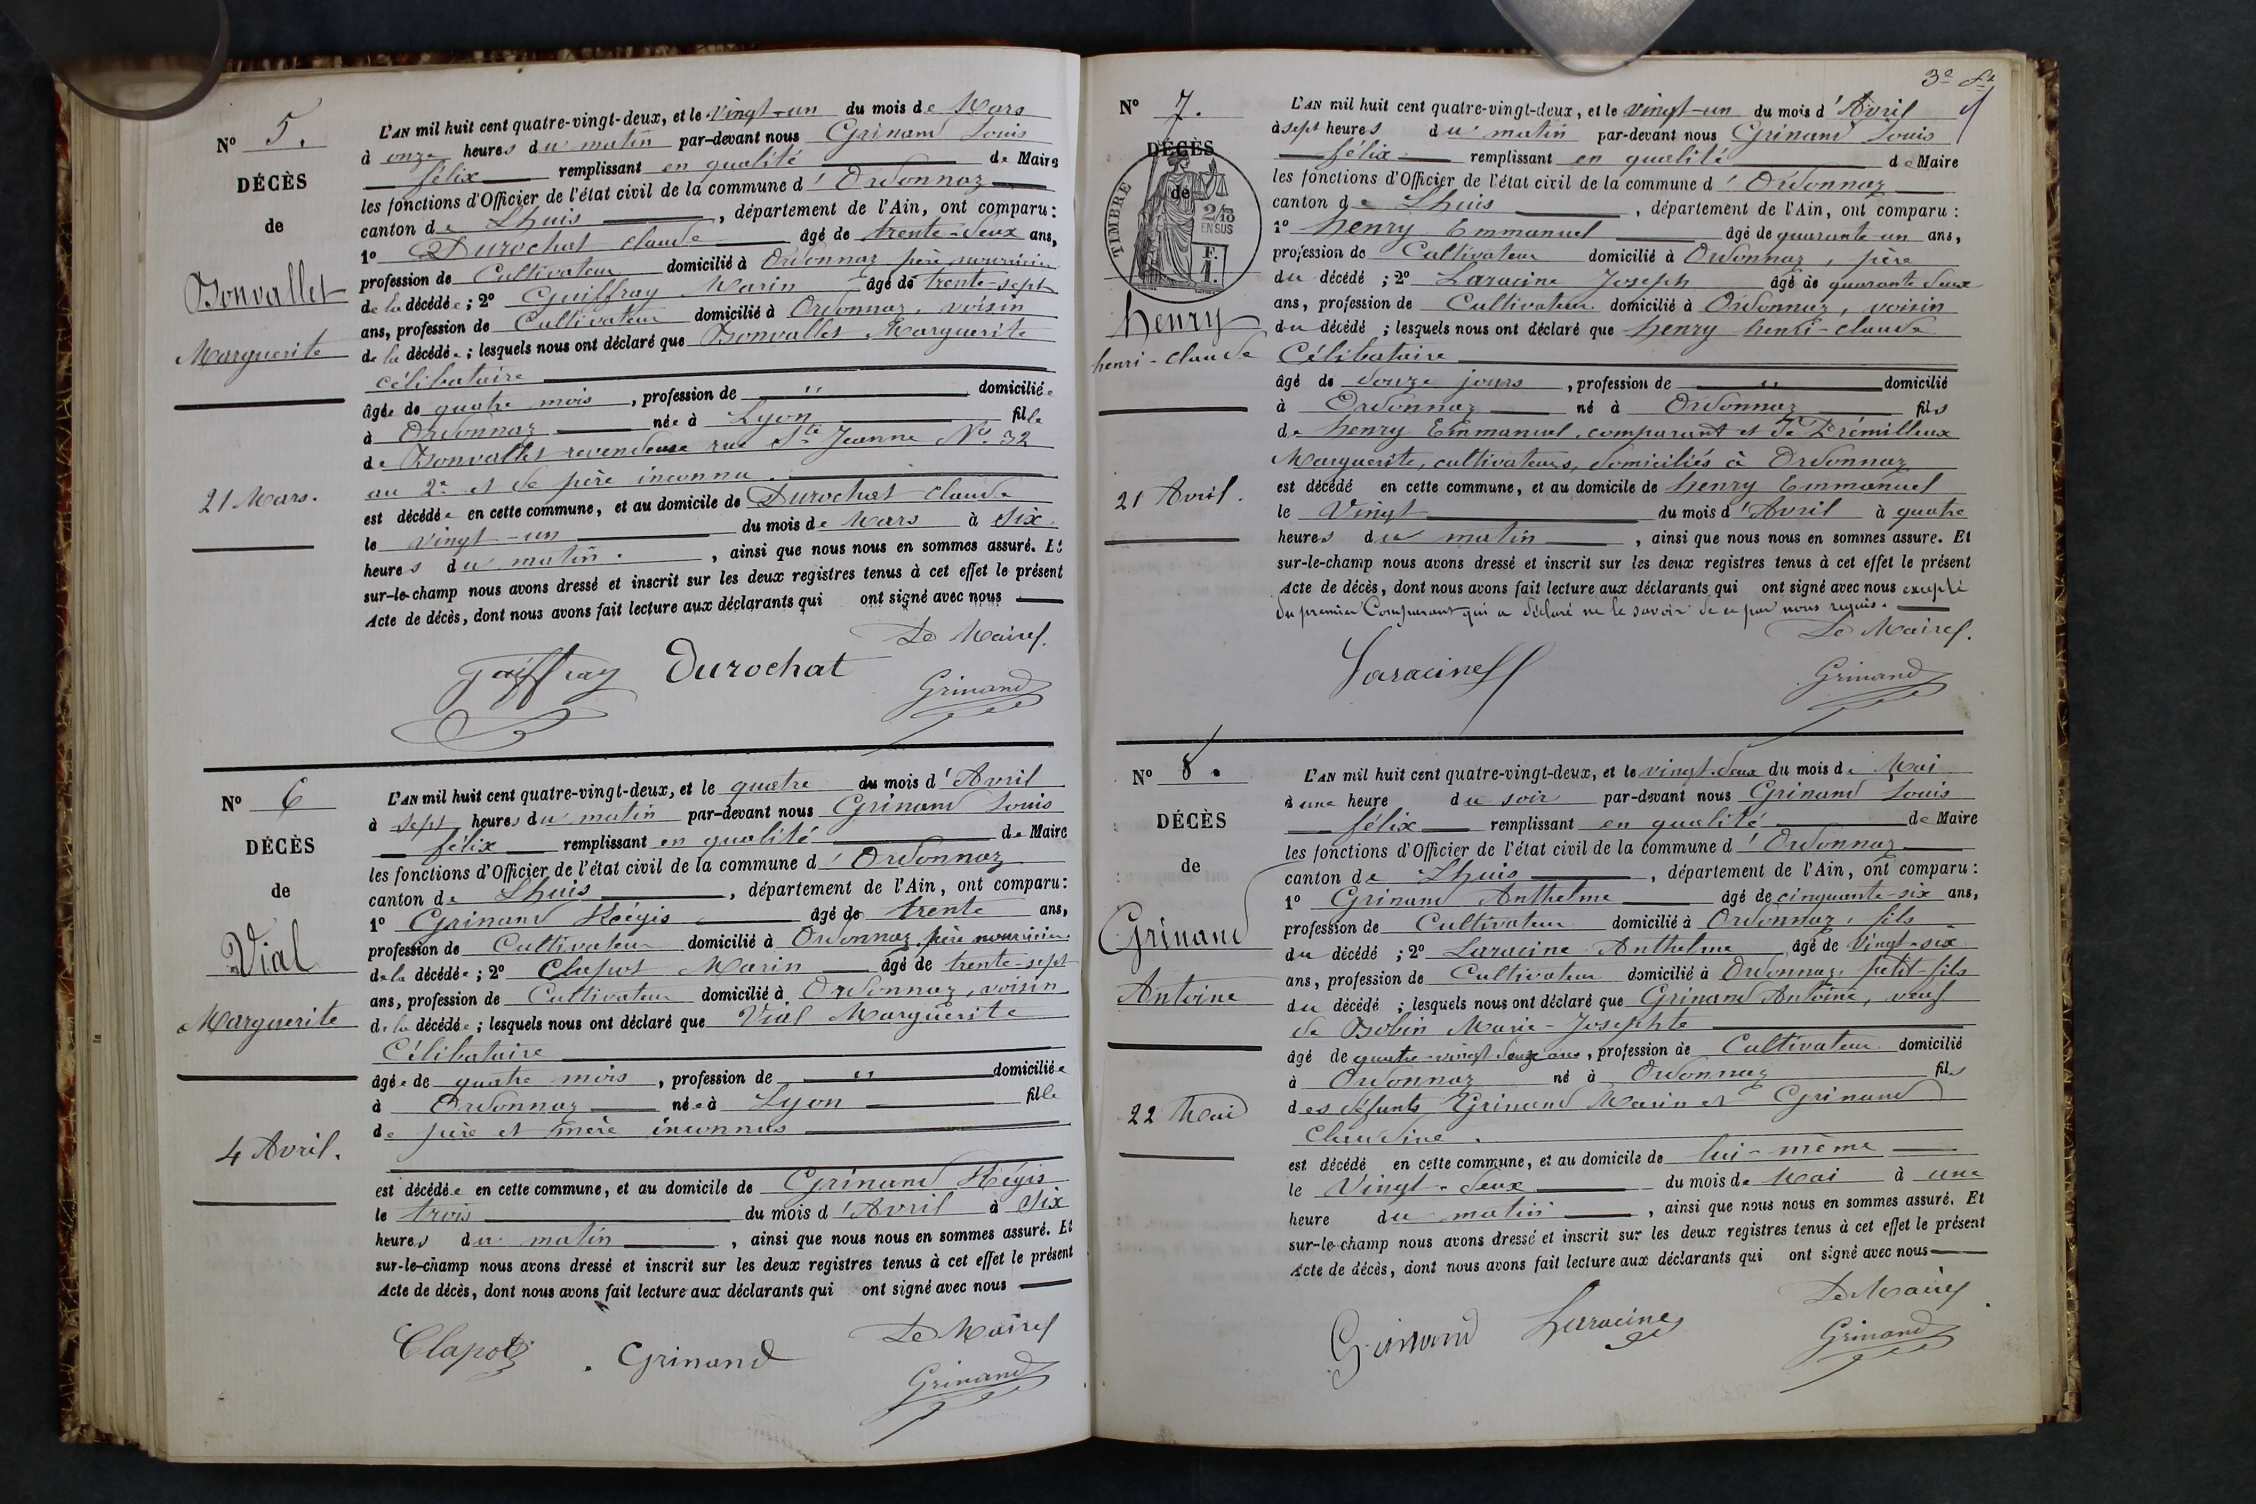 N° 5.
DÉCÈS
de
Bonvallet
Marguerite
21 Mars.
L'AN mil huit cent quatre-vingt-deux, et le vingt-un du mois de Mars
à onze heures du matin par-devant nous Grinand Louis
félix remplissant en qualité de Maire
les fonctions d'Officier de l'état civil de la commune d'Ordonnaz
canton de Lhuis, département de l'Ain, ont comparu :
1° Durochat Claude âgé de trente-deux ans,
profession de Cultivateur domicilié à Ordonnaz père nourricier
de la décédée ; 2° Guiffray Marin âgé de trente-sept
ans, profession de Cultivateur domicilié à Ordonnaz, voisin
de la décédée ; lesquels nous ont déclaré que Bonvallet Marguerite
célibataire
âgée de quatre mois, profession de " domiciliée
à Ordonnaz née à Lyon fille
de Bonvallet revendeuse rue Ste Jeanne N° 32
au 2e et de père inconnu.
est décédée en cette commune, et au domicile de Durochat Claude
le vingt-un du mois de Mars à six
heures du matin., ainsi que nous nous en sommes assuré. Et
sur-le-champ nous avons dressé et inscrit sur les deux registres tenus à cet effet le présent
Acte de décès, dont nous avons fait lecture aux déclarants qui ont signé avec nous
Le Maire
Durochat
Grinand
N° 6
DÉCÈS
de
Vial
Marguerite
4 Avril.
L'AN mil huit cent quatre-vingt-deux, et le quatre du mois d'Avril
à sept heures du matin par-devant nous Grinand Louis
félix remplissant en qualité de Maire
les fonctions d'Officier de l'état civil de la commune d'Ordonnaz
canton de Lhuis, département de l'Ain, ont comparu :
1° Grinand Régis âgé de trente ans,
profession de Cultivateur domicilié à Ordonnaz père nourricier
de la décédée ; 2° Clapot Marin âgé de trente-sept
ans, profession de Cultivateur domicilié à Ordonnaz, voisin
de la décédée ; lesquels nous ont déclaré que Vial Marguerite
Célibataire
âgée de quatre mois, profession de " domiciliée
à Ordonnaz née à Lyon fille
de père et mère inconnus
est décédée en cette commune, et au domicile de Grinand Régis
le trois du mois d'Avril à six
heures du matin, ainsi que nous nous en sommes assuré. Et
sur-le-champ nous avons dressé et inscrit sur les deux registres tenus à cet effet le présent
Acte de décès, dont nous avons fait lecture aux déclarants qui ont signé avec nous
Le Maire
Clapot Grinand
Grinand
3e
N° 7.
DÉCÈS
de
TIMBRE
2/10
EN SUS
F.
1.
henry
henri-claude
21 Avril.
L'AN mil huit cent quatre-vingt-deux, et le vingt-un du mois d'Avril
à sept heures du matin par-devant nous Grinand Louis
félix remplissant en qualité de Maire
les fonctions d'Officier de l'état civil de la commune d'Ordonnaz
canton de Lhuis, département de l'Ain, ont comparu :
1° henry Emmanuel âgé de quarante-un ans,
profession de Cultivateur domicilié à Ordonnaz, père
du décédé ; 2° Laracine Joseph âgé de quarante deux
ans, profession de Cultivateur domicilié à Ordonnaz, voisin
du décédé ; lesquels nous ont déclaré que henry henri-claude
Célibataire
âgé de douze jours, profession de " domicilié
à Ordonnaz né à Ordonnaz fils
de henry Emmanuel, comparant et de Trémilleux
Marguerite, cultivateurs, domiciliés à Ordonnaz
est décédé en cette commune, et au domicile de henry Emmanuel
le Vingt du mois d'Avril à quatre
heures du matin, ainsi que nous nous en sommes assuré. Et
sur-le-champ nous avons dressé et inscrit sur les deux registres tenus à cet effet le présent
Acte de décès, dont nous avons fait lecture aux déclarants qui ont signé avec nous excepté
du premier Comparant qui a déclaré ne le savoir de ce par nous requis.
Le Maire
Laracine
Grinand
N° 8.
DÉCÈS
de
Grinand
Antoine
22 Mai
L'AN mil huit cent quatre-vingt-deux, et le vingt-deux du mois de Mai
à une heure du soir par-devant nous Grinand Louis
félix remplissant en qualité de Maire
les fonctions d'Officier de l'état civil de la commune d'Ordonnaz
canton de Lhuis, département de l'Ain, ont comparu :
1° Grinand Anthelme âgé de cinquante-six ans,
profession de Cultivateur domicilié à Ordonnaz, fils
du décédé ; 2° Laracine Anthelme âgé de Vingt-six
ans, profession de Cultivateur domicilié à Ordonnaz, petit-fils
du décédé ; lesquels nous ont déclaré que Grinand Antoine, veuf
de Bobin Marie-Josephte
âgé de quatre-vingt douze ans, profession de Cultivateur domicilié
à Ordonnaz né à Ordonnaz fils
des défunts Grinand Marin et Grinand
Claudine.
est décédé en cette commune, et au domicile de lui-même
le Vingt-deux du mois de Mai à une
heure du matin, ainsi que nous nous en sommes assuré. Et
sur-le-champ nous avons dressé et inscrit sur les deux registres tenus à cet effet le présent
Acte de décès, dont nous avons fait lecture aux déclarants qui ont signé avec nous
Le Maire
Grinand Laracine
Grinand